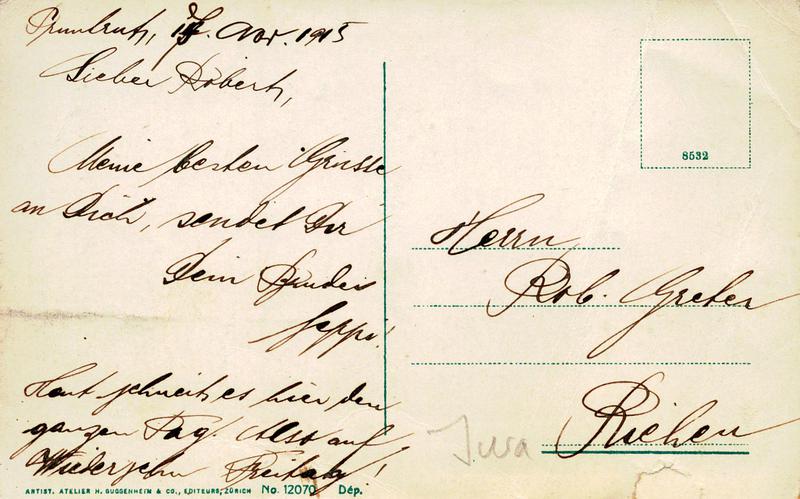 Pruntrut, 17. Nov. 1915
Lieber Robert,
Meine besten Grüsse
an Dich, sendet Dir
Dein Bruder
Seppi!
Heut schneit es hier den
ganzen Tag. Also auf
Wiedersehn Freitag!
8532
Herrn
Rob. Greter
Riehen
Jura
ARTIST. ATELIER H. GUGGENHEIM & CO., EDITEURS, ZÜRICH No. 12070 Dép.